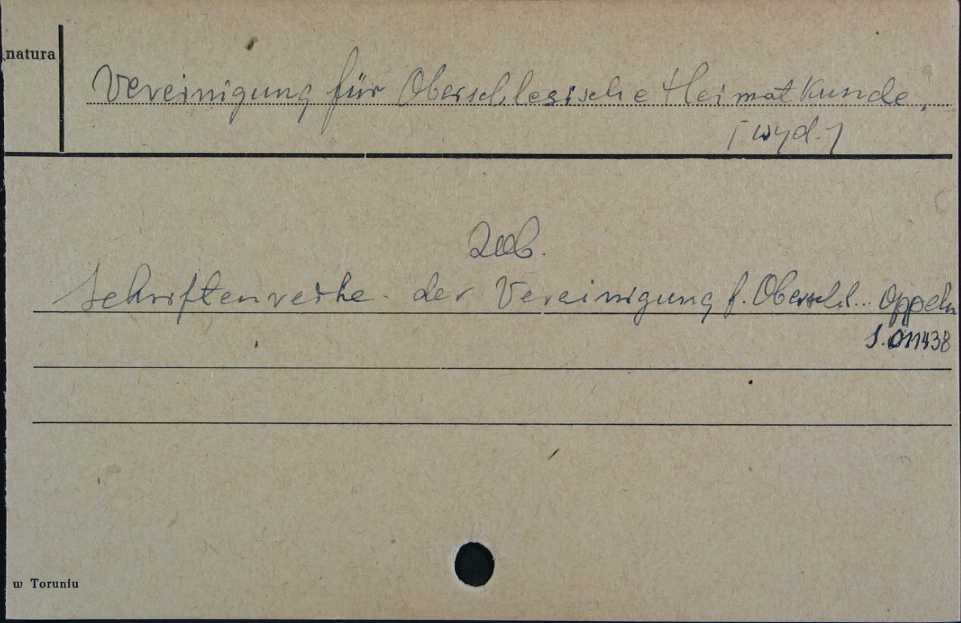 natura
Vereinigung für Oberschlesische Heimatkunde,
[wyd.]
zob.
Schriftenreihe der Vereinigung f. Oberschl... Oppeln
S.011438
w Toruniu